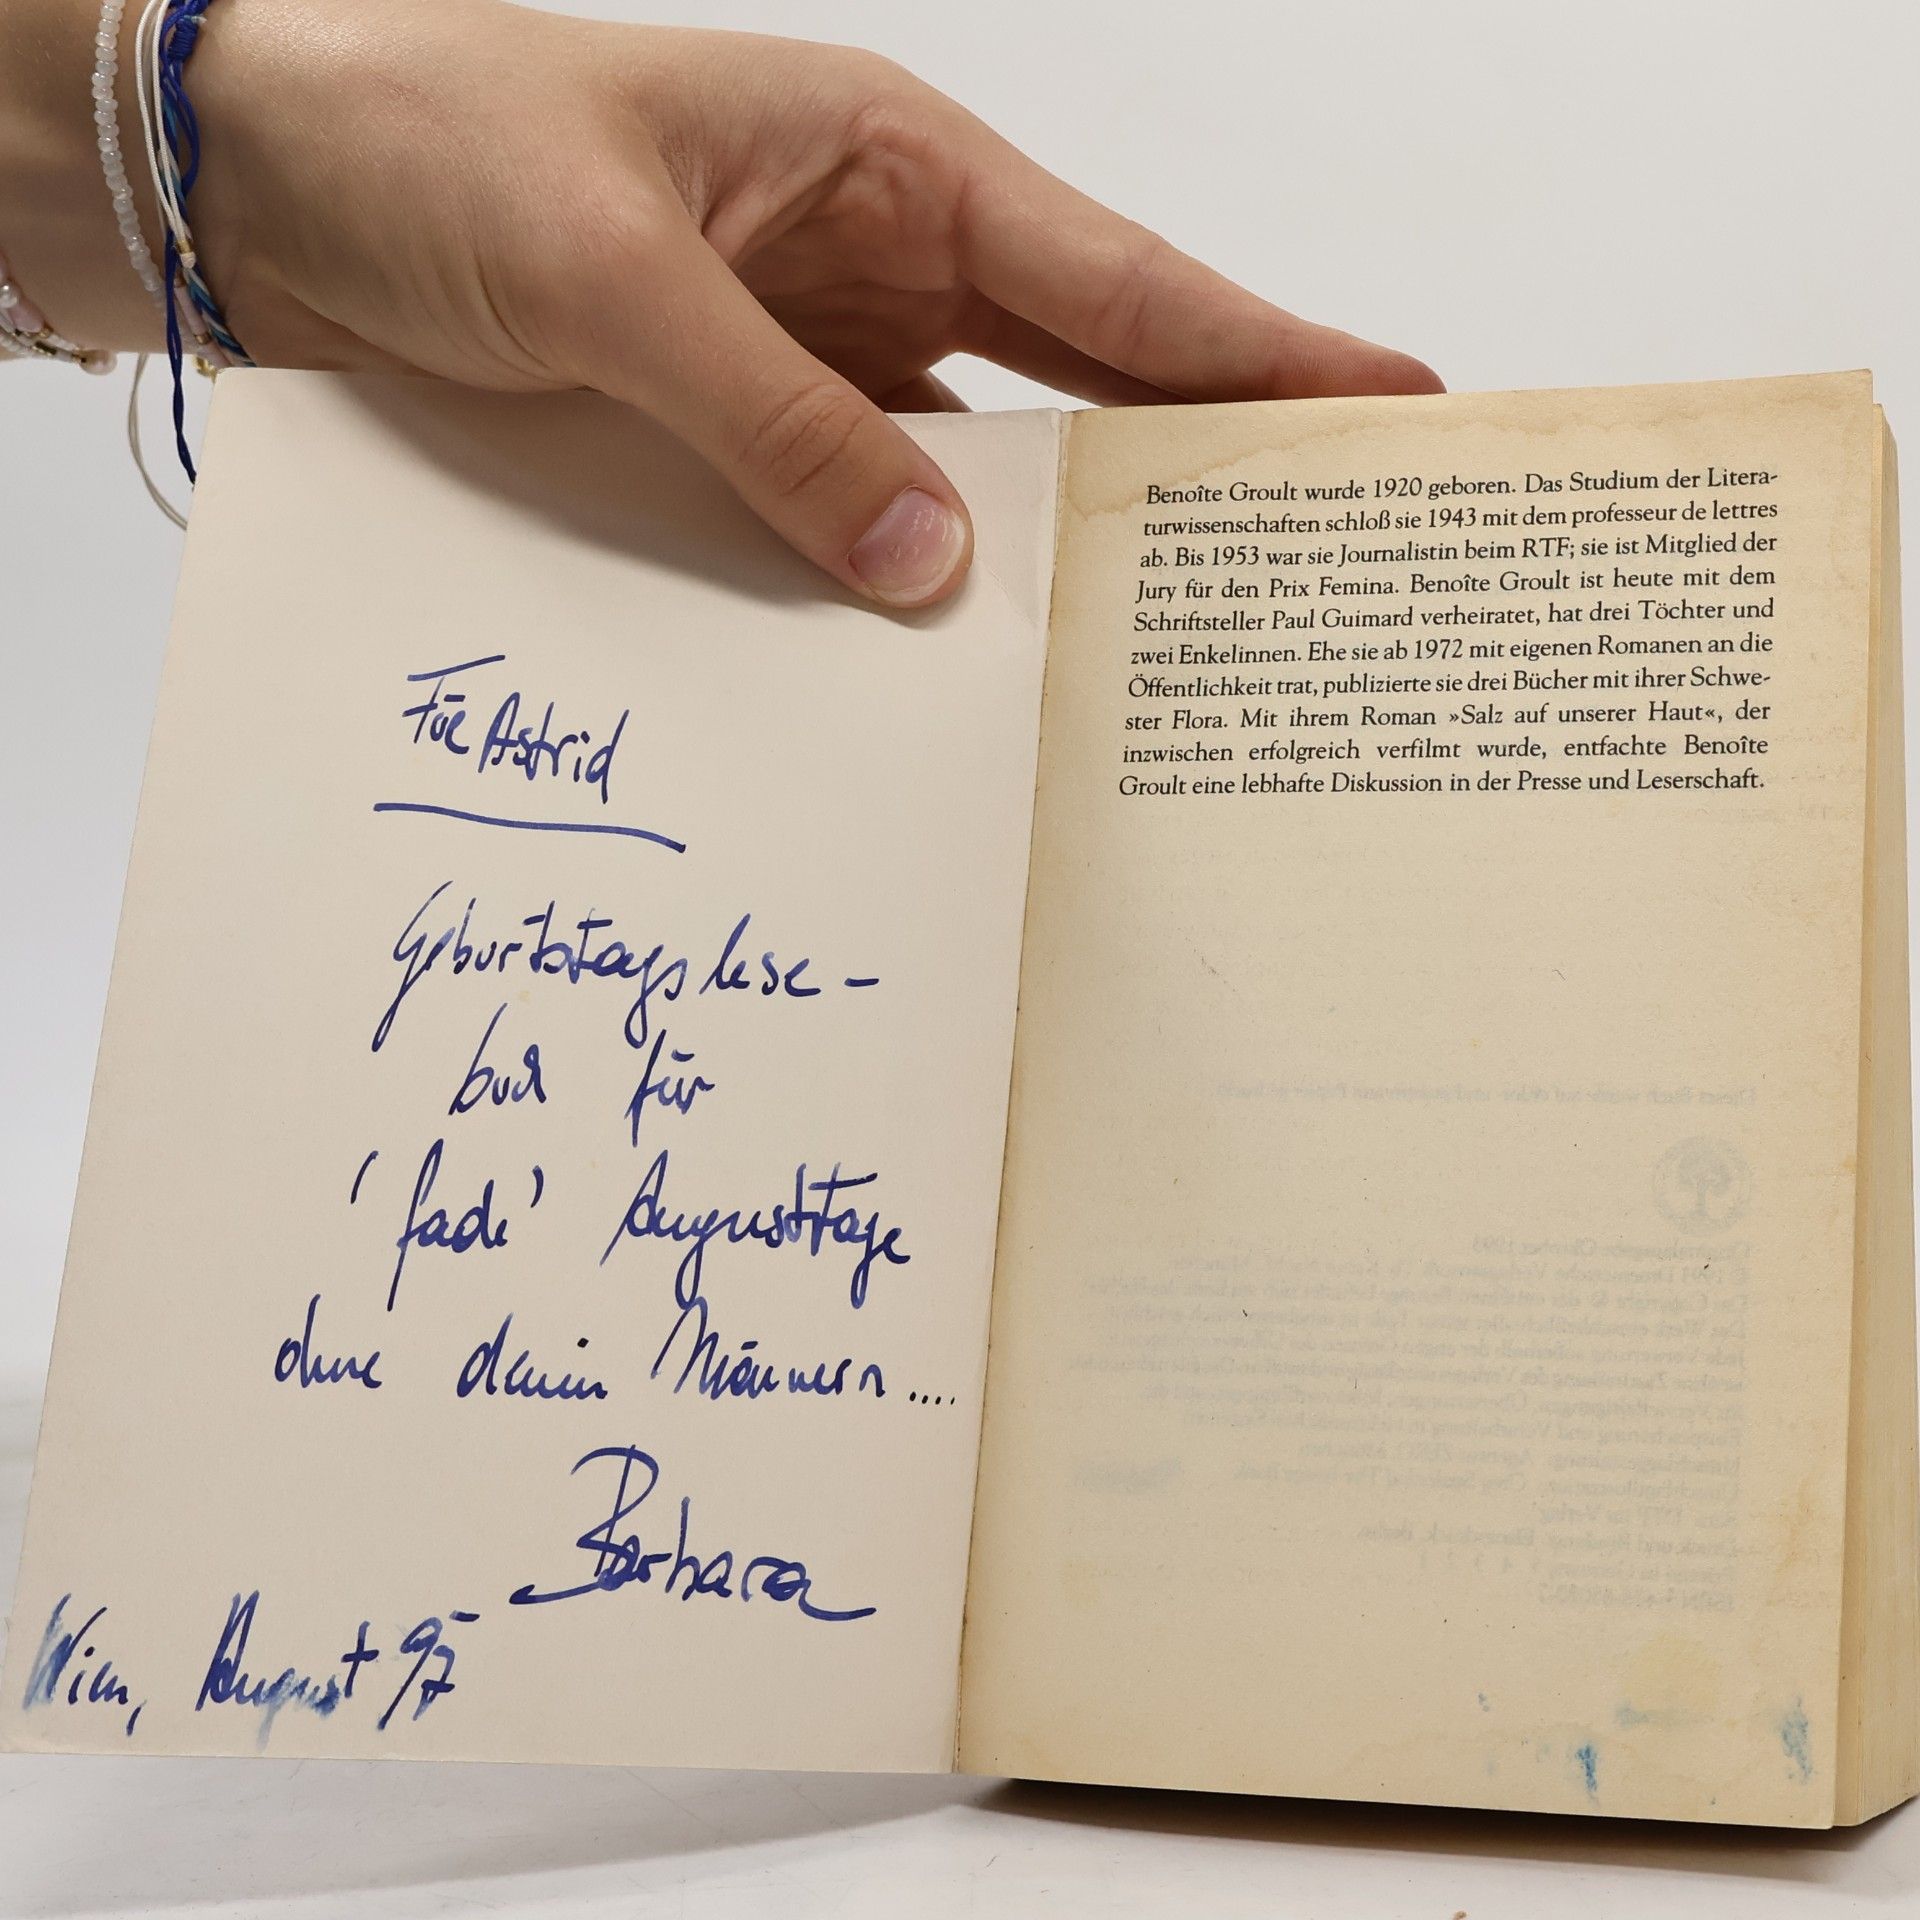 Für Astrid
Geburtstagslese-
buch für
'fade' Augusttage
ohne
Männern....
Barbara
Wien, August 97
Benoîte Groult wurde 1920 geboren. Das Studium der Litera-
turwissenschaften schloß sie 1943 mit dem professeur de lettres
ab. Bis 1953 war sie Journalistin beim RTF; sie ist Mitglied der
Jury für den Prix Femina. Benoîte Groult ist heute mit dem
Schriftsteller Paul Guimard verheiratet, hat drei Töchter und
zwei Enkelinnen. Ehe sie ab 1972 mit eigenen Romanen an die
Öffentlichkeit trat, publizierte sie drei Bücher mit ihrer Schwe-
ster Flora. Mit ihrem Roman »Salz auf unserer Haut«, der
inzwischen erfolgreich verfilmt wurde, entfachte Benoîte
Groult eine lebhafte Diskussion in der Presse und Leserschaft.